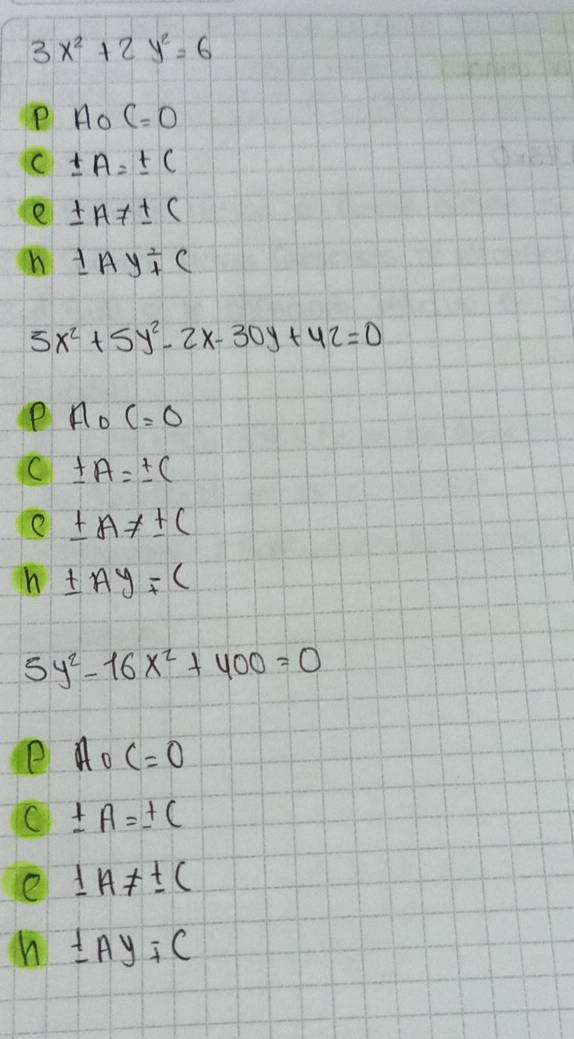 3x² + 2y² = 6
P A o C = 0
C ± A = ± C
e ± A ≠ ± C
h ± A y ∓ C
5x² + 5y² - 2x - 30y + 42 = 0
P A o C = 0
C ± A = ± C
e ± A ≠ ± C
h ± A y ∓ C
5y² - 16x² + 400 = 0
P A o C = 0
C ± A = ± C
e ± A ≠ ± C
h ± A y ∓ C